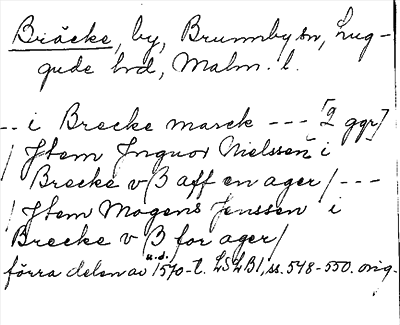 Bräcke, by, Brunnby sn, Lug-
gude hd, Malm. l.
-- i Brecke marck --- [2 ggr]
/ Jtem Jnguor Nielssen i
Brecke v β aff en ager / ---
/ Jtem Mogens Jenssen i
Brecke v β for ager /
förra delen av u.å. 1570-t. LSLB1, ss. 548-550. orig.